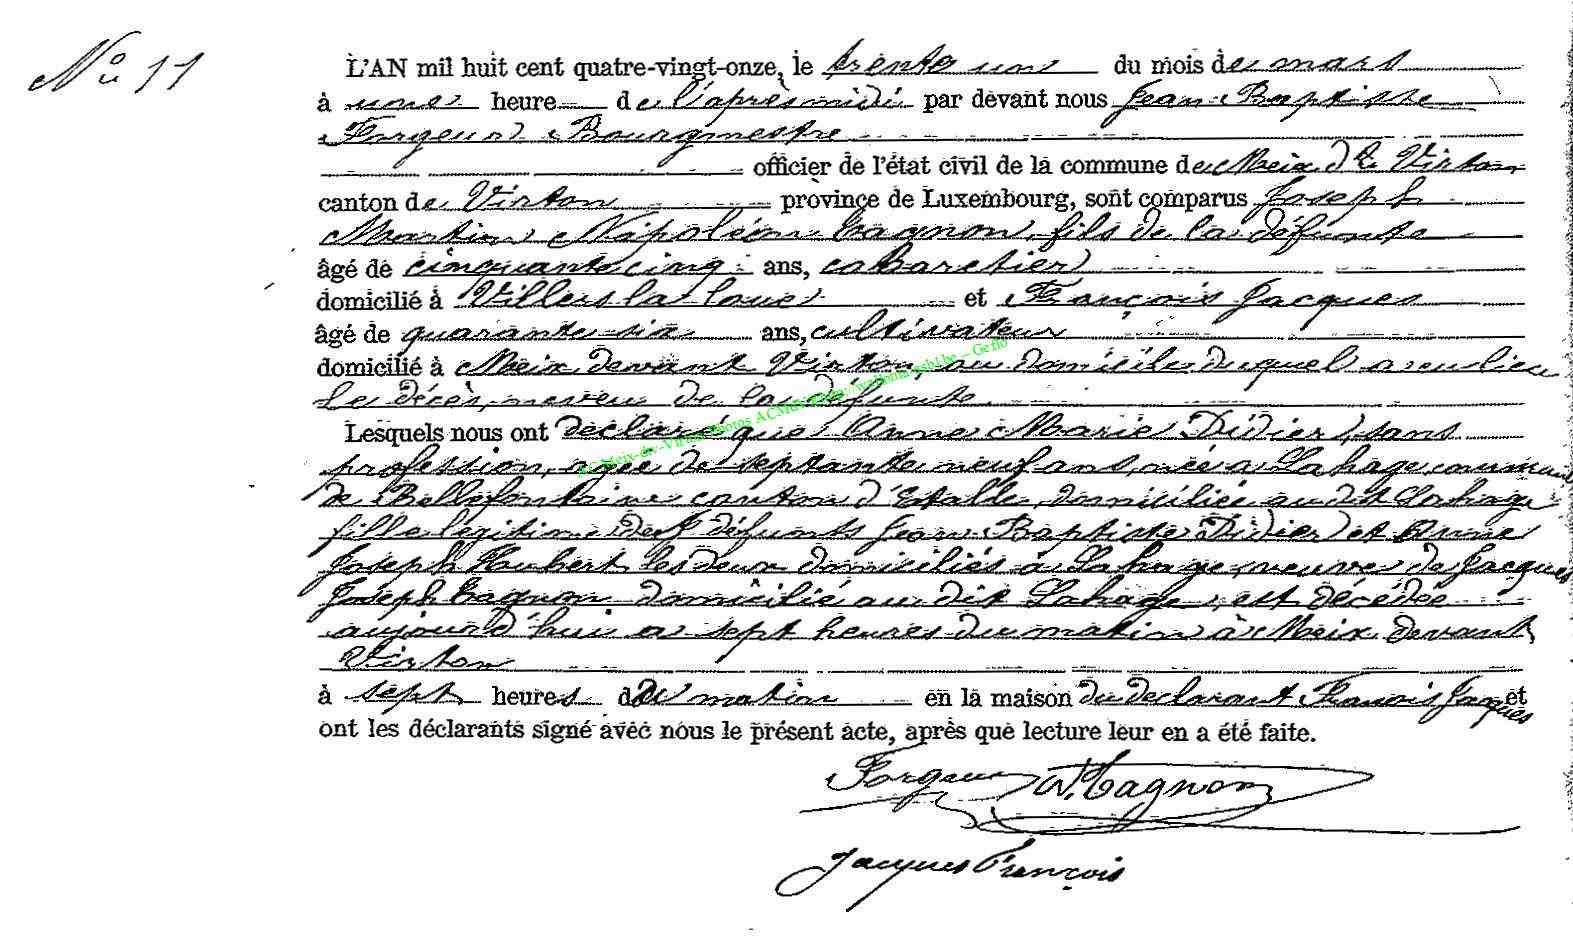 No 11
L'AN mil huit cent quatre-vingt-onze, le trente un du mois de mars
à une heure de l'après midi par devant nous Jean Baptiste
Forgeur Bourgmestre
officier de l'état civil de la commune de Meix dt Virton
canton de Virton province de Luxembourg, sont comparus Joseph
Martin Napoléon Tagnon, fils de la défunte
âgé de cinquante cinq ans, cabaretier
domicilié à Villers la loue et François Jacques
âgé de quarante six ans, cultivateur
domicilié à Meix devant Virton, au domicile duquel a eu lieu
le décès, neveu de la défunte
Lesquels nous ont déclaré que Anne Marie Didier, sans
profession, agée de septante neuf ans, née a Lahage, commune
de Bellefontaine canton d'Etalle, domiciliée au dit Lahage
fille légitime des défunts Jean Baptiste Didier et Anne
Joseph Haubert les deux domiciliés à Lahage, veuve de Jacques
Joseph Tagnon domicilié au dit Lahage, est décédée
aujourd'hui a sept heures du matin à Meix devant
Virton
à sept heures du matin en la maison du declarant François Jacques et
ont les déclarants signé avec nous le présent acte, après que lecture leur en a été faite.
Forgeur N. Tagnon
Jacques François